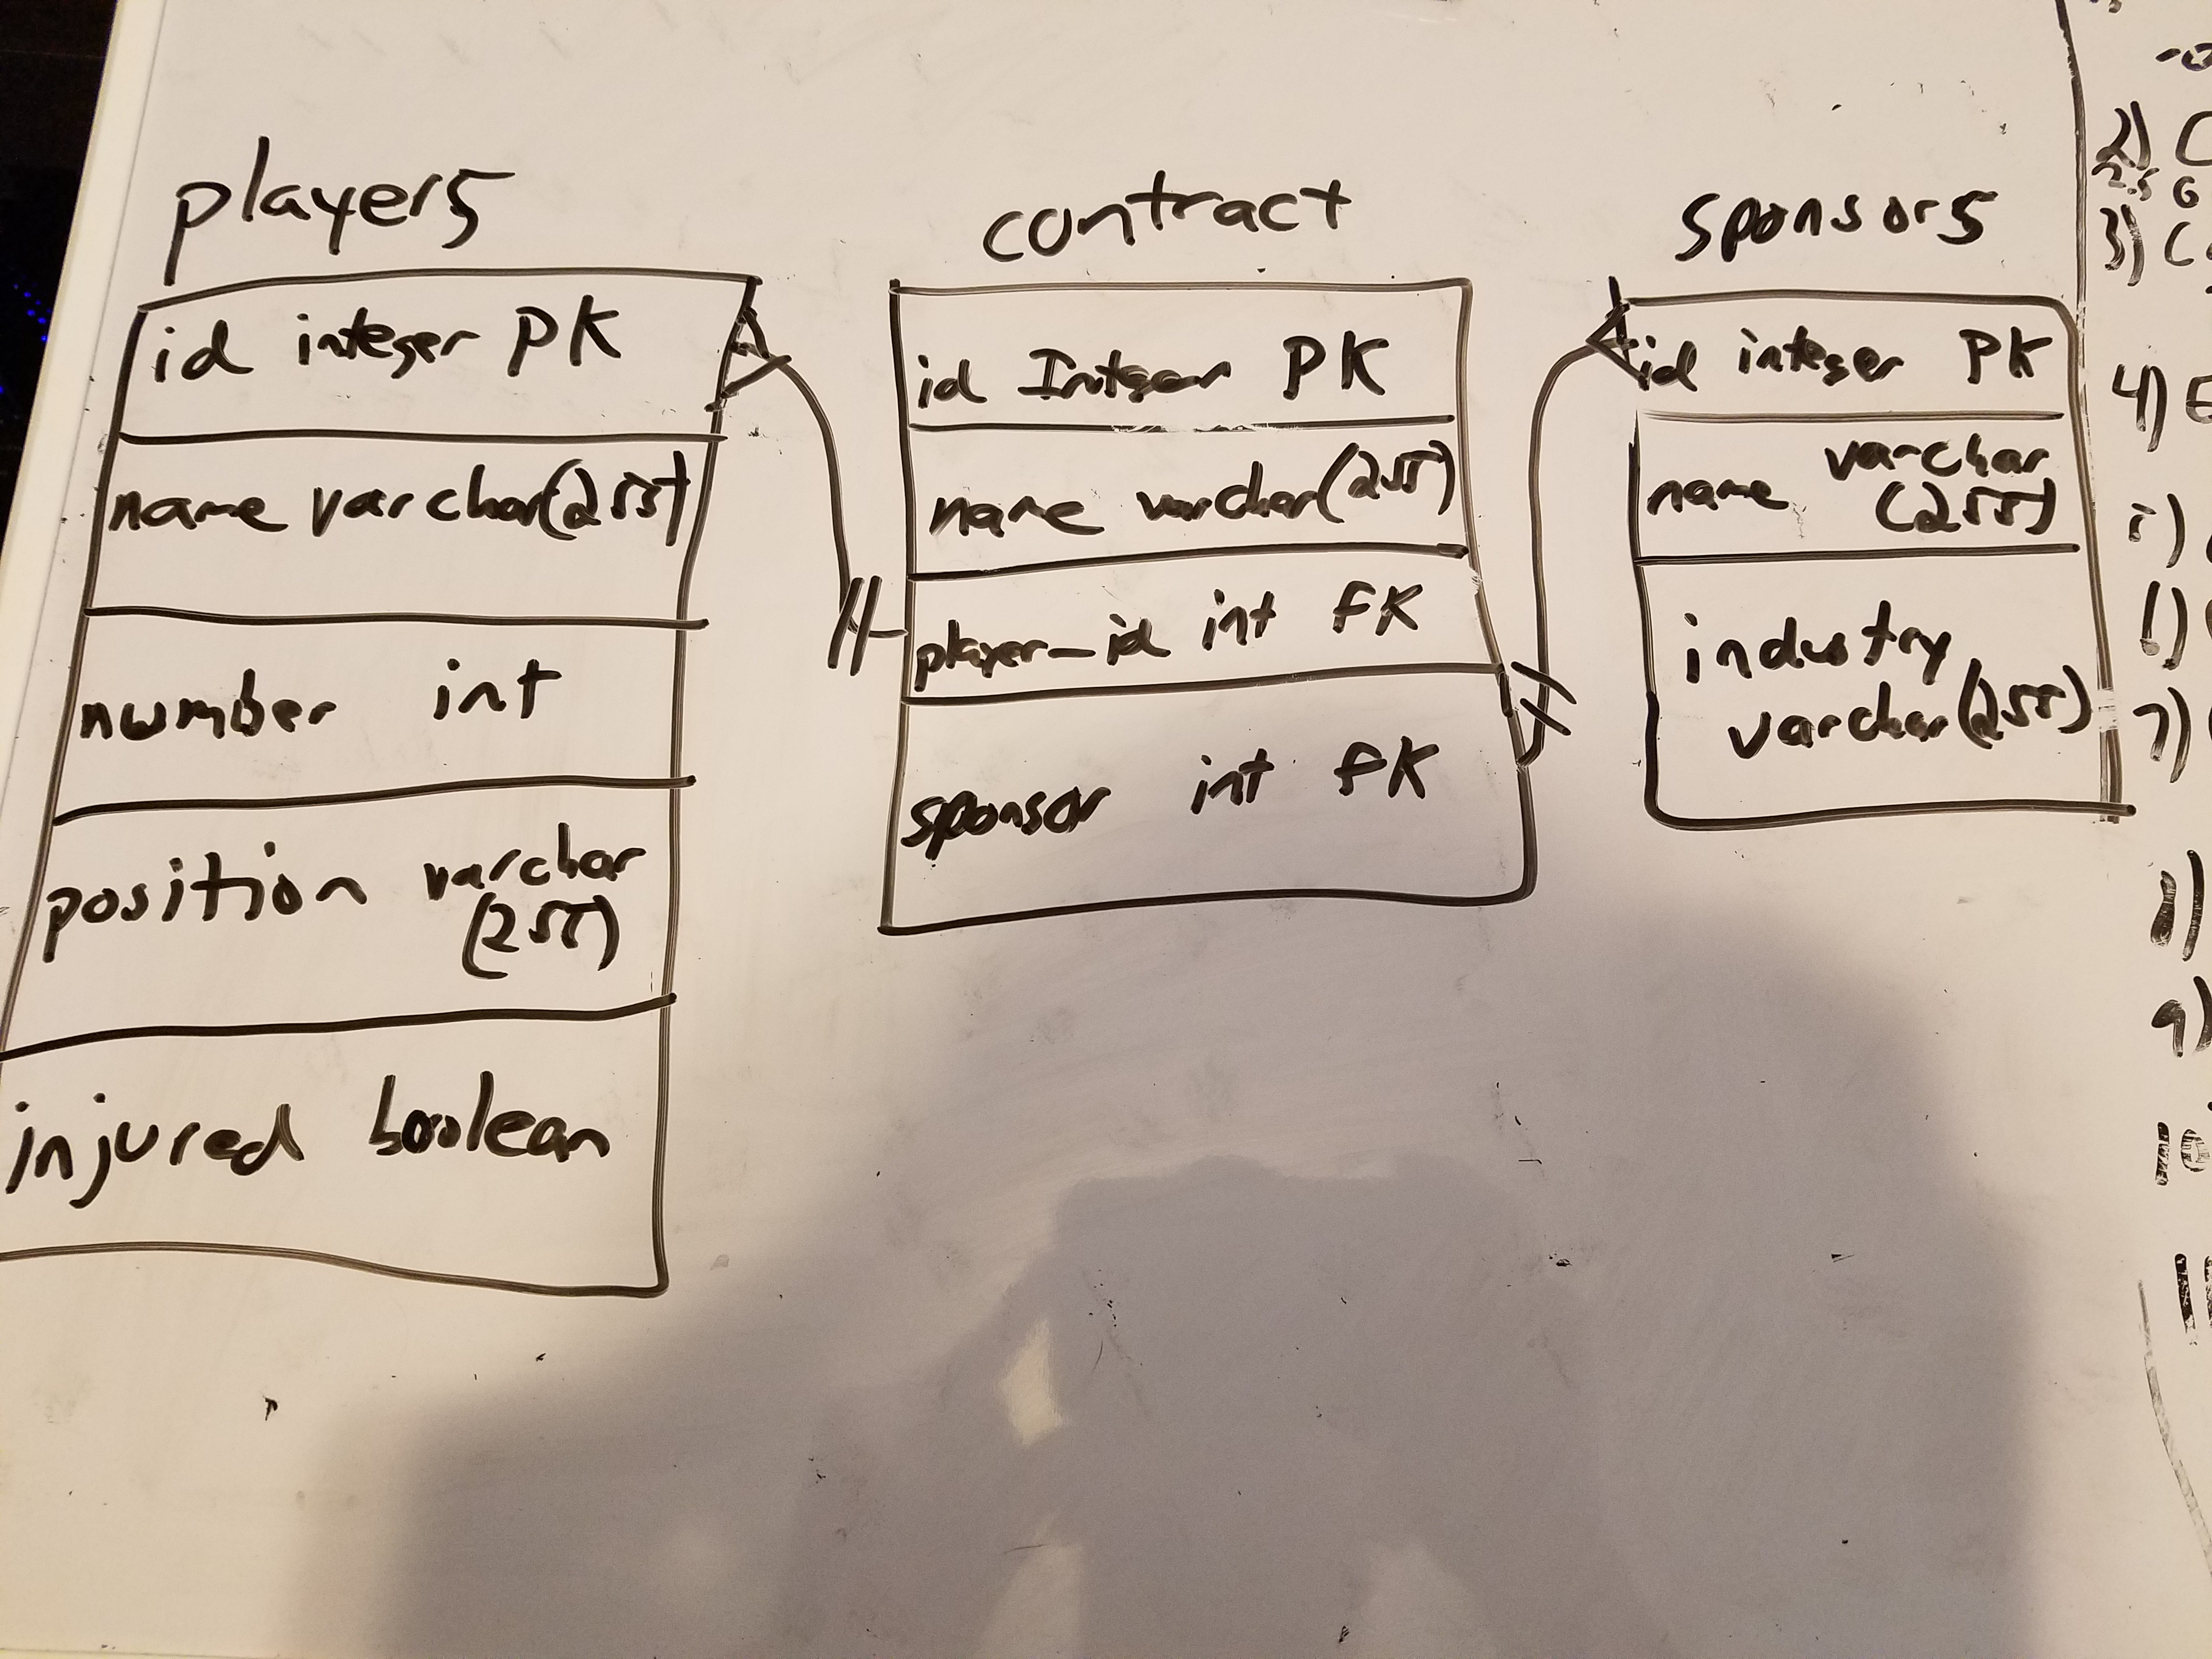 players
id integer PK
name varchar(255)
number int
position varchar
(255)
injured boolean
contract
id Integer PK
name varchar(255)
player_id int FK
sponsor int FK
sponsors
id integer PK
name varchar
(255)
industry
varchar(255)
2)
3)
4)
7)
8)
9)